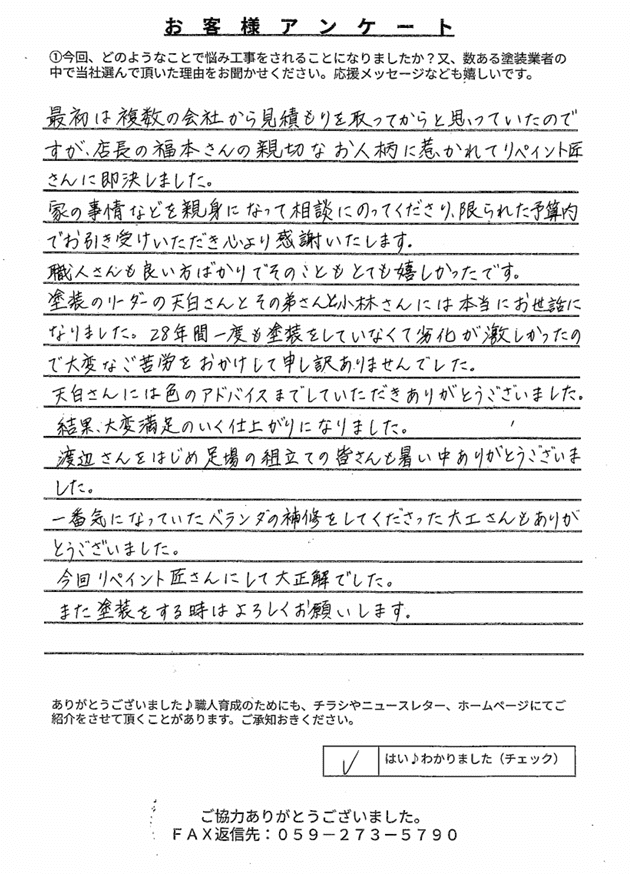 お客様アンケート
①今回、どのようなことで悩み工事をされることになりましたか？又、数ある塗装業者の
中で当社選んで頂いた理由をお聞かせください。応援メッセージなども嬉しいです。
最初は複数の会社から見積もりを取ってからと思っていたので
すが、店長の福本さんの親切なお人柄に惹かれてリペイント匠
さんに即決しました。
家の事情などを親身になって相談にのってくださり、限られた予算内
でお引き受けいただき心より感謝いたします。
職人さんも良い方ばかりでそのこともとても嬉しかったです。
塗装のリーダーの天白さんとその弟さんと小林さんには本当にお世話に
なりました。28年間一度も塗装をしていなくて劣化が激しかったの
で大変なご苦労をおかけして申し訳ありませんでした。
天白さんには色のアドバイスまでしていただきありがとうございました。
結果、大変満足のいく仕上がりになりました。
渡辺さんをはじめ足場の組立ての皆さんも暑い中ありがとうございま
した。
一番気になっていたベランダの補修をしてくださった大工さんもありが
とうございました。
今回リペイント匠さんにして大正解でした。
また塗装をする時はよろしくお願いします。
ありがとうございました♪職人育成のためにも、チラシやニュースレター、ホームページにてご
紹介をさせて頂くことがあります。ご承知おきください。
✓ はい♪わかりました（チェック）
ご協力ありがとうございました。
ＦＡＸ返信先：０５９－２７３－５７９０